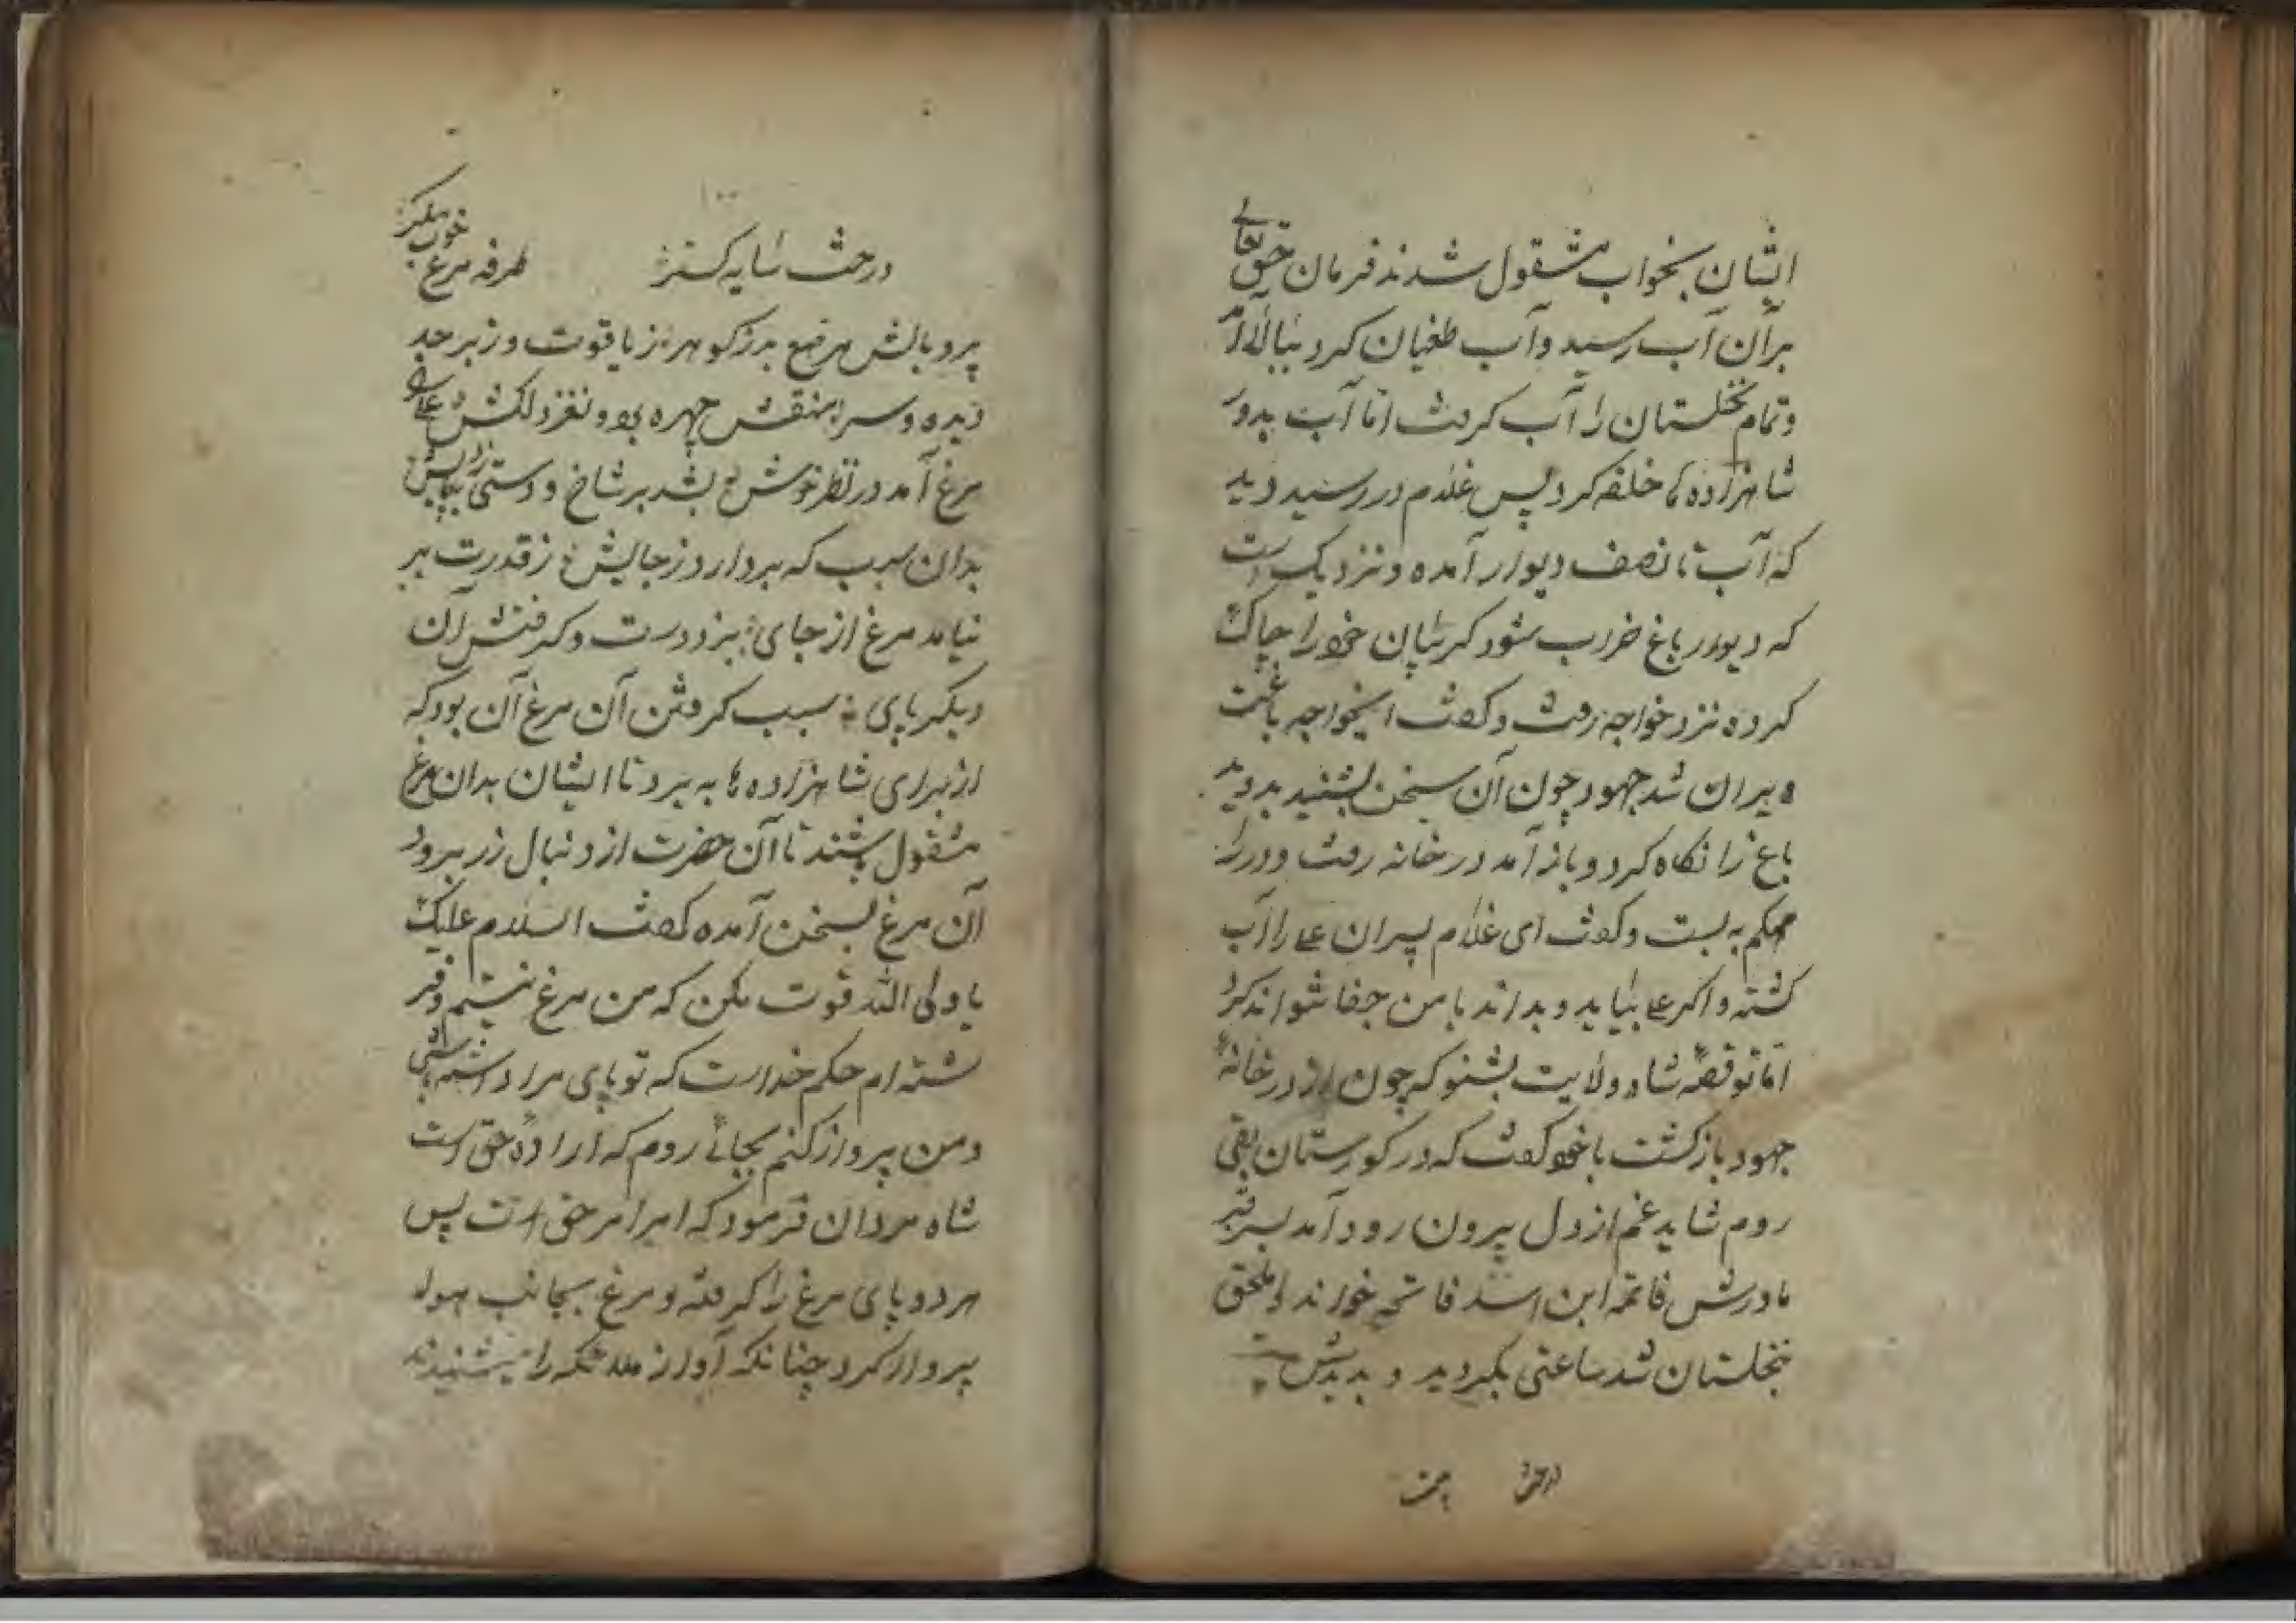 ایشان بخواب مشقول شدند فرمان حق تعالی
بر آن آب رسید و آب طغیان کرد ببالا آمد
و تمام نخلستان را آب کرفت اما آب بدور
شاهزاده ها حلقه کرد پس غلام در رسید دید
که آب تا نصف دیوار آمده و نزدیک است
که دیوار باغ خراب شود کریبان خود را چاک
کرده نزد خواجه رفت و کفت ایخواجه باغت
ویران شد جهود چون آن سخن بشنید بدوید
باغ را نکاه کرد و باز آمد در خانه رفت و در را
محکم به بست و کفت ای غلام پسران علی را آب
کشته و اکر علی بیاید و بداند با من جفا تواند کرد
اما تو قصه شاه ولایت بشنو که چون از در خانه
جهود بازکشت با خود کفت که در کورستان بقی
روم شاید غم از دل بیرون رود آمد بسر قبر
مادرش فاتمه ابن اسد فاتحه خواند و ملحق
نخلستان شد ساعتی بکردید و بدید
درخت
درخت سایه کستر طرفه مرغ خوب پیکر
پر و بالش مرصع بد ز کوهر ز یاقوت و زبرجد
دیده و سر منقش چهره بود و نغز دلکش علی
مرغ آمد در نظر خوش بشد بر شاخ و دستی زد بپایش
بدان سبب که بردارد ز جایش ز قدرت بر
نیامد مرغ از جای بزد دست و کرفتش آن
دیکر پای سبب کرفتن آن مرغ آن بود که
از برای شاهزاده ها به برد تا ایشان بدان مرغ
مشقول باشند تا آن حضرت از دنبال زر برود
آن مرغ بسخن آمده کفت السلام علیک
یا ولی الله قوت مکن که من مرغ نیستم و فر
شته ام حکم خداست که تو پای مرا داشته باشی
و من پرواز کنم بجائے روم که اراده حق است
شاه مردان فرمود که امر امر حق است پس
هر دو پای مرغ را کرفته و مرغ بجانب هوا
پرواز کرد چنانکه آواز ملائکه را میشنیدند